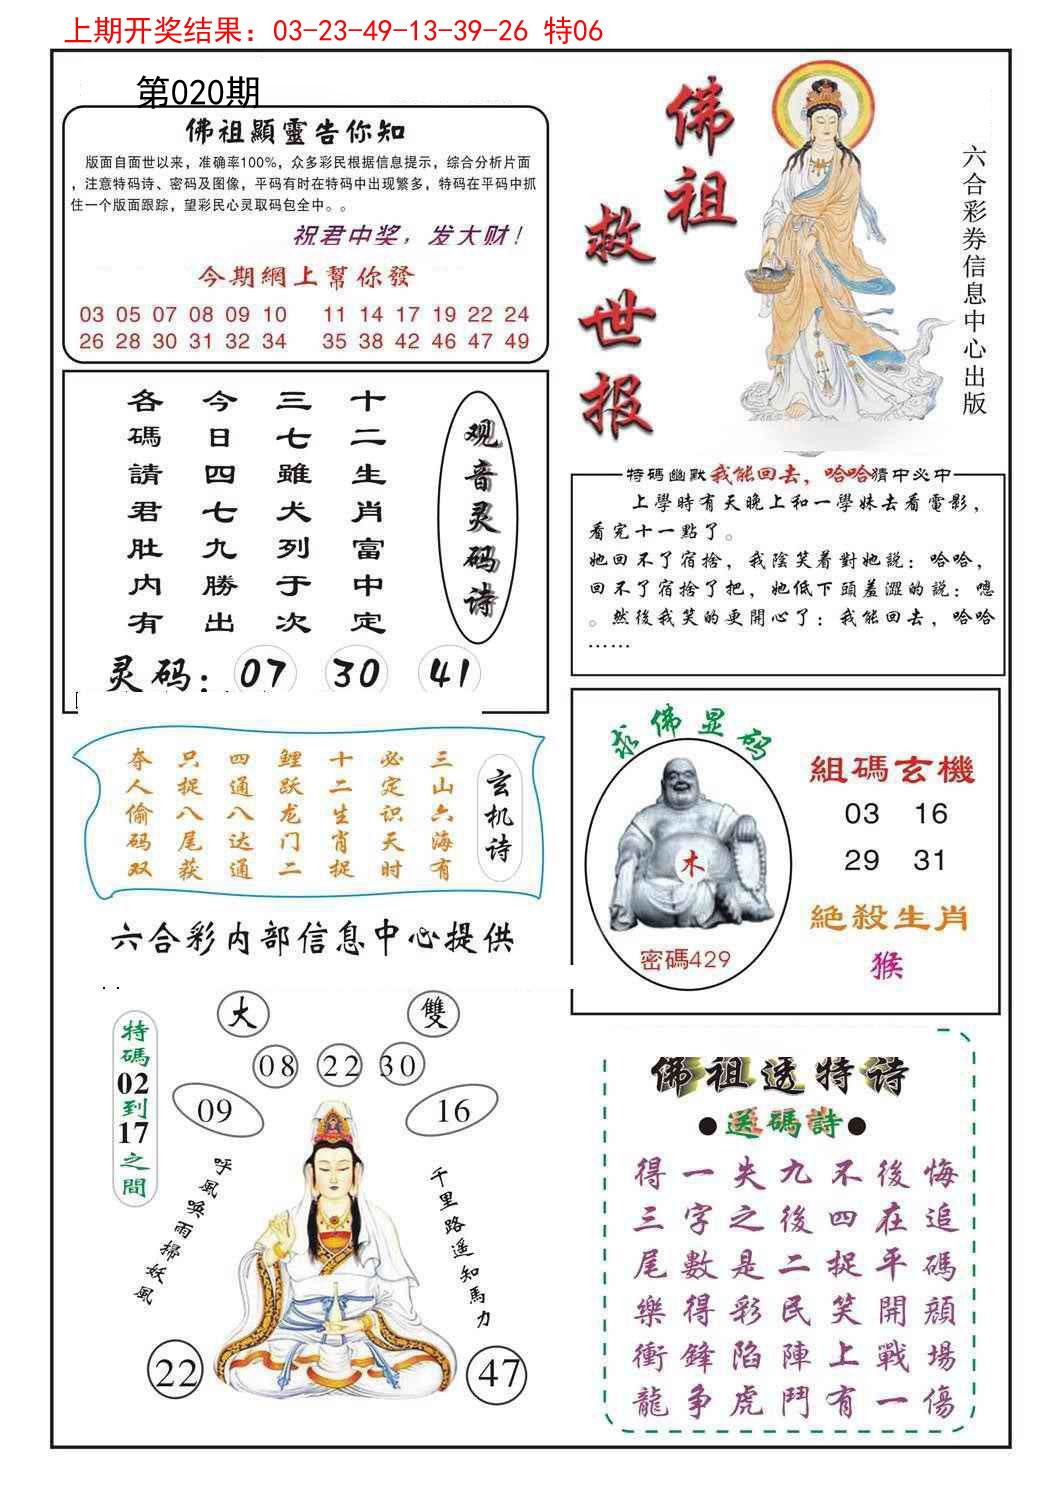 上期开奖结果：03-23-49-13-39-26 特06
第020期
佛祖顯靈告你知
版面自面世以来，准确率100%，众多彩民根据信息提示，综合分析片面
，注意特码诗、密码及图像，平码有时在特码中出现繁多，特码在平码中抓
住一个版面跟踪，望彩民心灵取码包全中。。
祝君中奖，发大财！
今期網上幫你發
03 05 07 08 09 10 11 14 17 19 22 24
26 28 30 31 32 34 35 38 42 46 47 49
佛祖
救世报
六合彩券信息中心出版
观音灵码诗
十二生肖富中定
三七雖犬列于次
今日四七九勝出
各碼請君肚内有
灵码：07 30 41
特碼幽默我能回去，哈哈猜中必中
上學時有天晚上和一學妹去看電影，
看完十一點了。
她回不了宿捨，我陰笑着對她説：哈哈，
回不了宿捨了把，她低下頭羞澀的説：嗯
。然後我笑的更開心了：我能回去，哈哈
……
玄机诗
三山六海有
必定识天时
十二生肖捉
鲤跃龙门二
四通八达通
只捉八尾获
夺人偷码双
六合彩内部信息中心提供
求佛显码
木
密碼429
組碼玄機
03 16
29 31
絶殺生肖
猴
特碼02到17之間
大 雙
08 22 30
09 16
呼風唤雨掃妖風
千里路遥知馬力
22 47
佛祖透特诗
●送碼詩●
得一失九不後悔
三字之後四在追
尾數是二捉平碼
樂得彩民笑開顔
衝鋒陷陣上戰場
龍争虎鬥有一傷